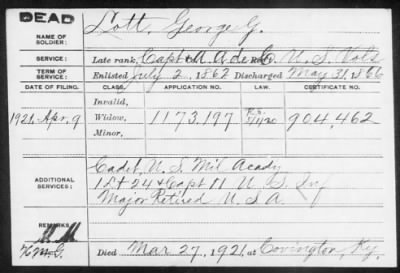 DEAD
NAME OF SOLDIER: Lott, George G.
SERVICE: Late rank, Capt & A. A de C. U. S. Vols
TERM OF SERVICE: Enlisted July 2, 1862 Discharged May 31, 1866
DATE OF FILING. CLASS. APPLICATION NO. CERTIFICATE NO.
Invalid,
1921, Apr. 9 Widow, 1173,197 904,462
Minor,
ADDITIONAL SERVICES: Cadet, U. S. Mil Acady
1 Lt 24 & Capt 11 U. S. Inf
Major Retired U S A.
REMARKS:
Died Mar 27, 1921, at Covington, Ky.